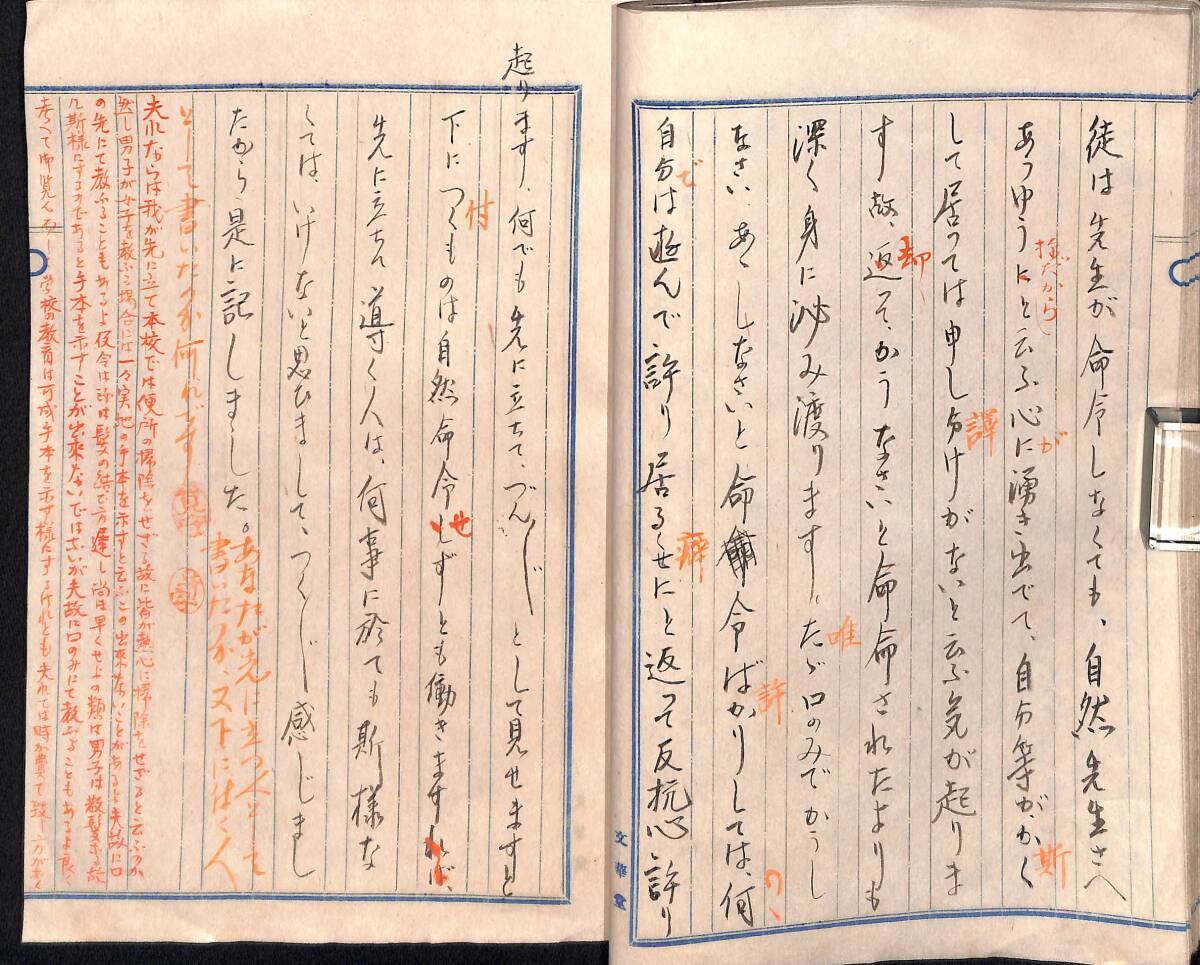 徒は先生が命令しなくても、自然先生さへ
あつゆうにと云ふ心に湧き出でて、自分等が、かく
強だから
が
斯
して居つては申し分けがないと云ふ気が起りま
譯
す故、返て、かうなさいと命命されたよりも
却
深く身に沁み渡ります。たゞ口のみでかうし
唯
なさい、あゝしなさいと命令ばかりしては、何
許
の、
自分は遊んで許り居るくせにと返つて反抗心許り
で
癖
文華堂
起ります、何でも先に立ちて、づん〳〵として見せますと
下につくものは自然命令とずとも働きますれば、
付
せ
先に立ちて導く人は、何事に於ても斯様な
くては、いけないと思ひまして、つく〴〵感じまし
たから是に記しました。
あなたが先に立つ人として
書いたか、又下に付く人
として書いたか何れです
夫れならは我が先に立て本校では便所の掃除をせざる故に皆が熱心に掃除をせざると云ふのか
然し男子が女子を教ふる場合には一々実地の手本を示すと云ふことの出来ないことがあるよ夫故に口
の先にて教ふることもあるよ仮令は髪の結び方遅し尚ほ早くせよの類は男子は散髪なる故
斯様にするのであると手本を示すことが出来ないではないか夫故に口のみにて教ふることもあるよ良く
考へて御覧
学校の教育は可成手本を示す様にするけれども夫れでは時が費て